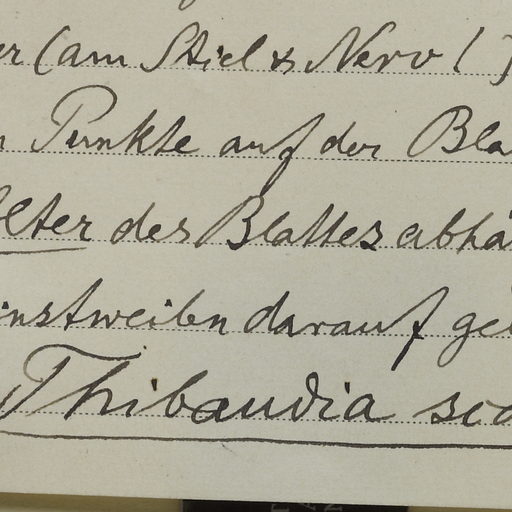 er (am Stiel & Nerv!)
n Punkte auf der Bla
lter des Blattes abhä
instweilen darauf ge
Thibaudia sca